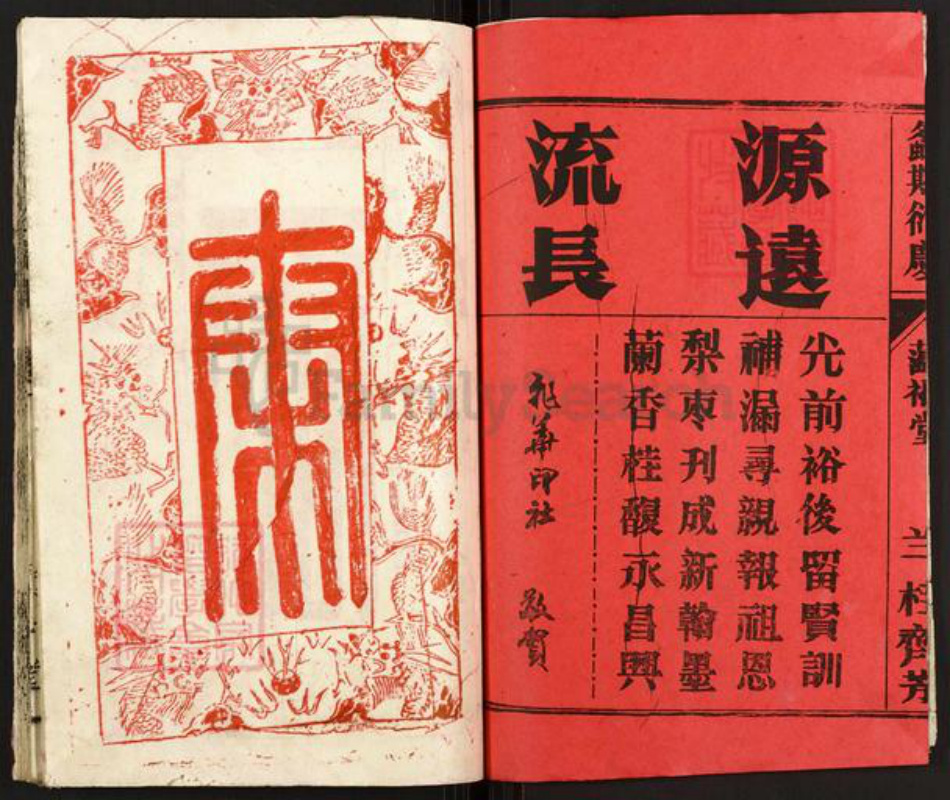 源遠
流長
光前裕後留賢訓
補漏尋親報祖恩
梨枣刋成新翰墨
蘭香桂馥永昌興
華印社
敬賀
兰桂齊芳
FamilySearch